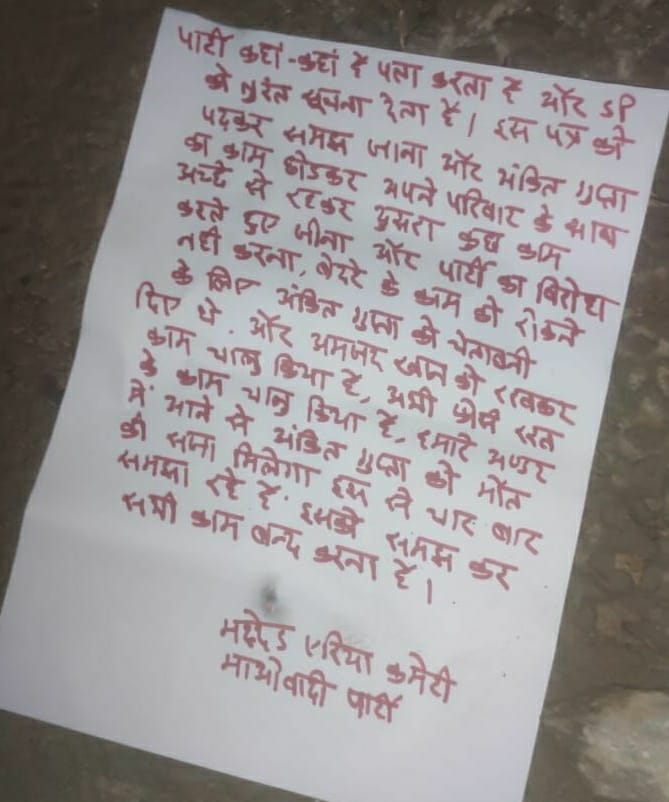 पार्टी कहां-कहां है पता करता है और SP
को तुरंत सूचना देता है। इस पत्र को
पढ़कर समझ जाना और अंकित गुप्ता
का काम छोडकर अपने परिवार के साथ
अच्छे से रहकर दुसरा कुछ काम
करते हुए जीना और पार्टी का विरोध
नही करना, बेदरे के काम को रोकने
के लिए अंकित गुप्ता को चेतावनी
दिए थे. और अमजद खान को रखकर
काम चालु किया है, अभी फोर्स
के काम चालु किया है, हमारे
में आने से अंकित गुप्ता को मौत
की सजा मिलेगा इस से चार बार
समझा रहे है. इसको समझ कर
सभी काम बन्द करना है।
मद्देड एरिया कमेटी
माओवादी पार्टी